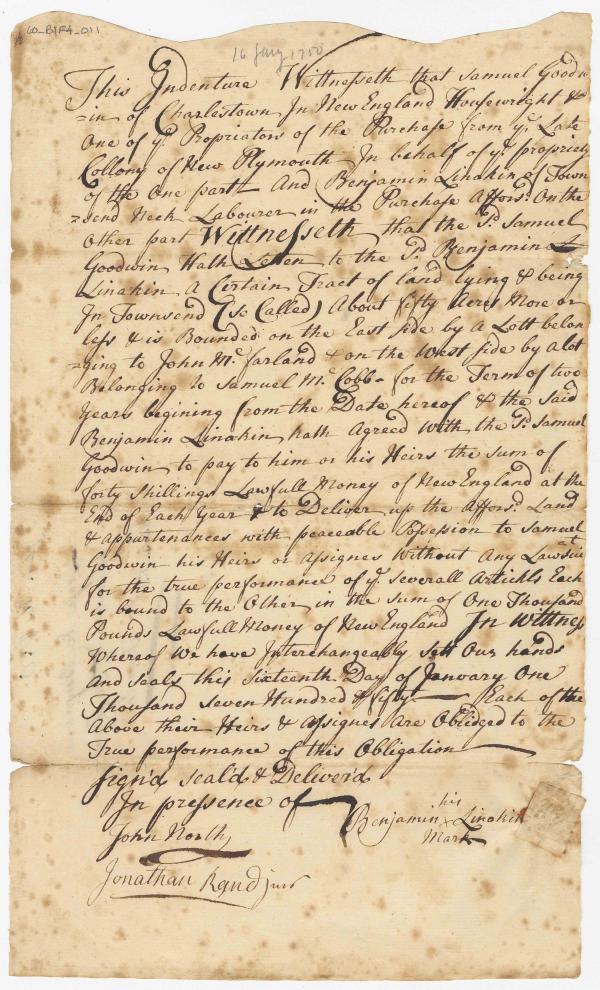 60_BTF4_011
16 Jany 1750
This Indenture Wittnesseth that Samuel Goodw
=in of Charlestown In New England Housewright &
One of ye. Propriators of the Purchase from ye. Late
Collony of New Plymouth In behalf of ye. propriety
of the One part And Benjamin Linakin of Town
=send Neck Labourer in the Purchase Afforsd. On the
Other part Wittnesseth that the Sd. Samuel
Goodwin Hath Leten to the Sd. Benjamin
Linakin A Certain Tract of land lying & being
In Townsend (so Called) About fifty Acres More or
less & is Bounded on the East side by a Lott belon
=ging to John Mc. farland & on the West side by a lot
Belonging to Samuel Mc. Cobb - for the Term of two
Years begining from the Date hereof & the Said
Benjamin Linakin hath Agreed With the Sd. Samuel
Goodwin to pay to him or his Heirs the sum of
forty Shillings Lawfull Money of New England at the
End of Each Year & to Deliver up the Afforsd. Land
& Appurtenances with peaceable Possession to Samuel
Goodwin his Heirs or Assignes Without Any Lawsuit
for the true performance of ye. Severall Artickls Each
is bound to the Other in the sum of One Thousand
Pounds Lawfull Money of New England In Wittness
Whereof We have Interchangeably sett Our hands
And seals this Sixteenth Day of January One
Thousand Seven Hundred & fifty — Each of the
Above their Heirs & Assignes Are Oblidged to the
True performance of this Obligation
Sign'd Seal'd & Deliver'd
In presence of
his
Benjamin x Linakin
Mark
John North
Jonathan Rand junr